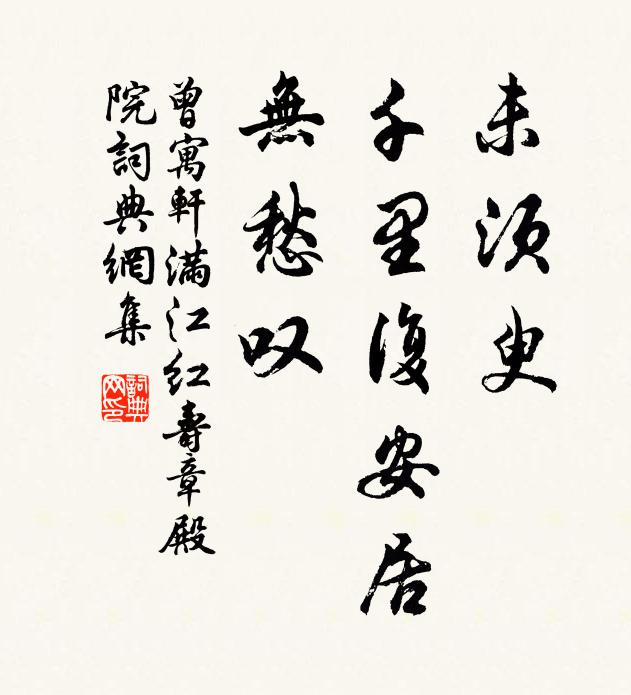 未須臾
千里復安居
無愁叹
曾寓軒滿江红壽章殿
院詞典網集
詞典
网印